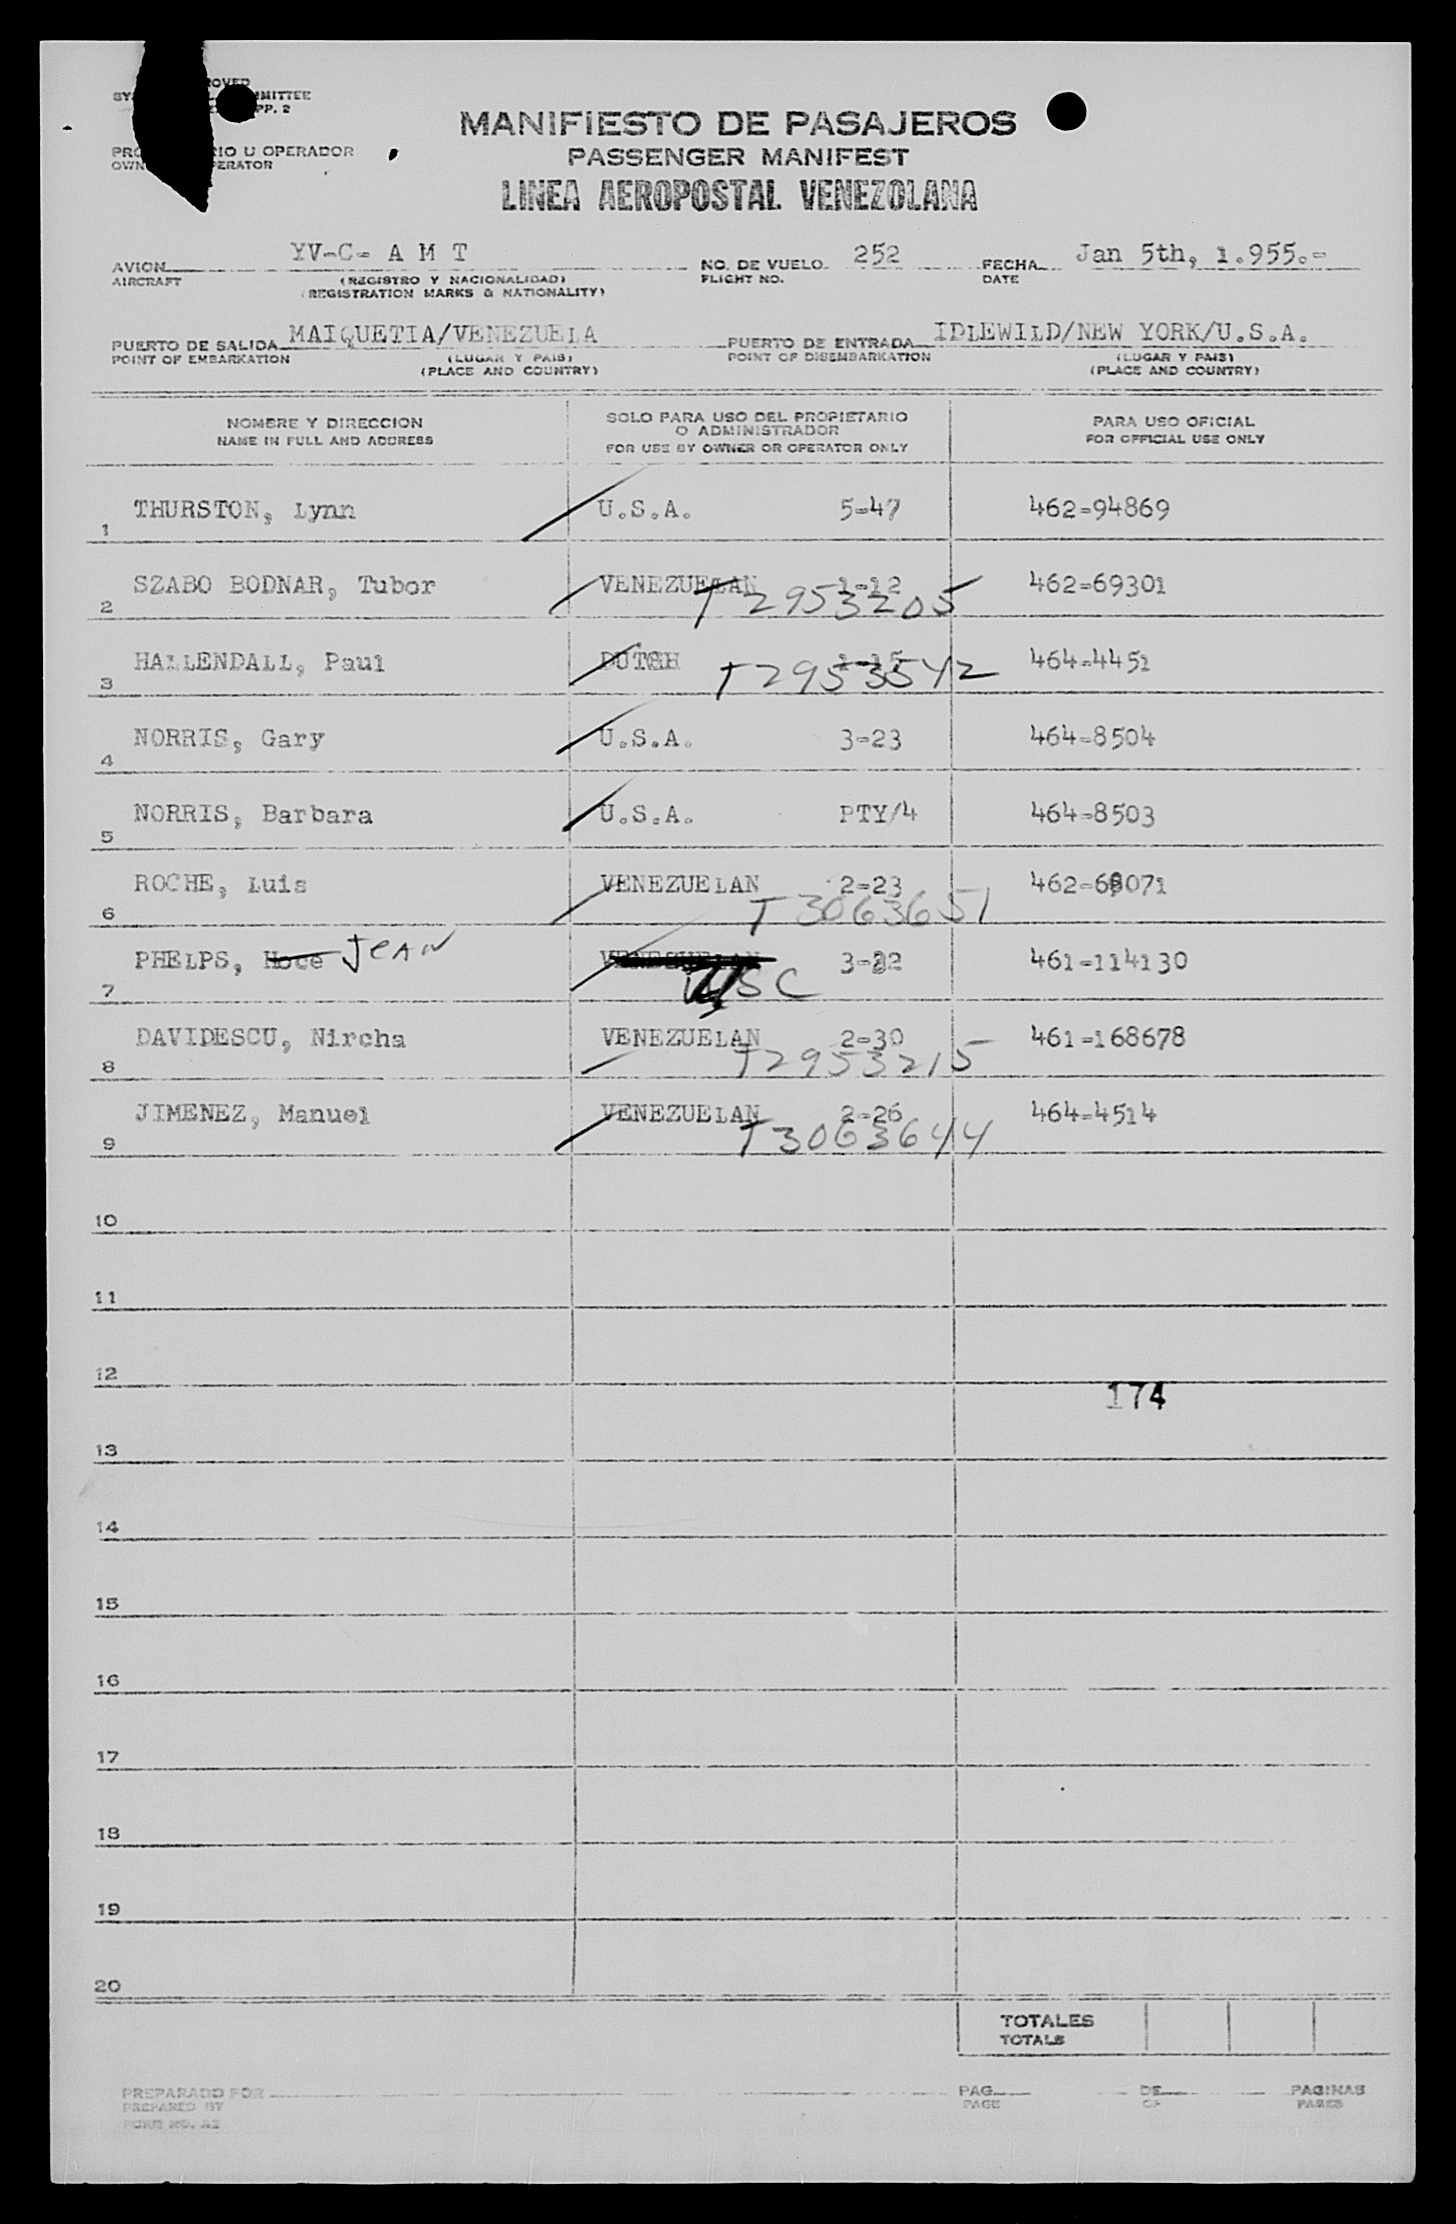 MANIFIESTO DE PASAJEROS
PASSENGER MANIFEST
LINEA AEROPOSTAL VENEZOLANA
MMITTEE
PP. 2
U OPERADOR
AVION YV-C- A M T NO. DE VUELO 252 FECHA Jan 5th, 1.955.-
AIRCRAFT (REGISTRO Y NACIONALIDAD) FLIGHT NO. DATE
(REGISTRATION MARKS & NATIONALITY)
PUERTO DE SALIDA MAIQUETIA/VENEZUELA PUERTO DE ENTRADA IDLEWILD/NEW YORK/U.S.A.
POINT OF EMBARKATION (LUGAR Y PAIS) POINT OF DISEMBARKATION (LUGAR Y PAIS)
(PLACE AND COUNTRY) (PLACE AND COUNTRY)
NOMBRE Y DIRECCION SOLO PARA USO DEL PROPIETARIO PARA USO OFICIAL
O ADMINISTRADOR
NAME IN FULL AND ADDRESS FOR USE BY OWNER OR OPERATOR ONLY FOR OFFICIAL USE ONLY
1 THURSTON, Lynn U.S.A. 5-47 462-94869
2 SZABO BODNAR, Tubor VENEZUELAN 1-12 462-69301
T2953205
3 HALLENDALL, Paul DUTCH 1-15 464-4451
T2953542
4 NORRIS, Gary U.S.A. 3-23 464-8504
5 NORRIS, Barbara U.S.A. PTY/4 464-8503
6 ROCHE, Luis VENEZUELAN 2-23
T3063651
7 PHELPS, Hoce Jean 461-114130
USC
8 DAVIDESCU, Nircha VENEZUELAN 2-30 461-168678
T2953215
9 JIMENEZ, Manuel VENEZUELAN 2-26 464-4514
T3063644
10
11
12
174
13
14
15
16
17
18
19
20
TOTALES
TOTALS
PREPARADO POR PAG. DE PAGINAS
PREPARED BY PAGE OF PAGES
FORM NO. A2